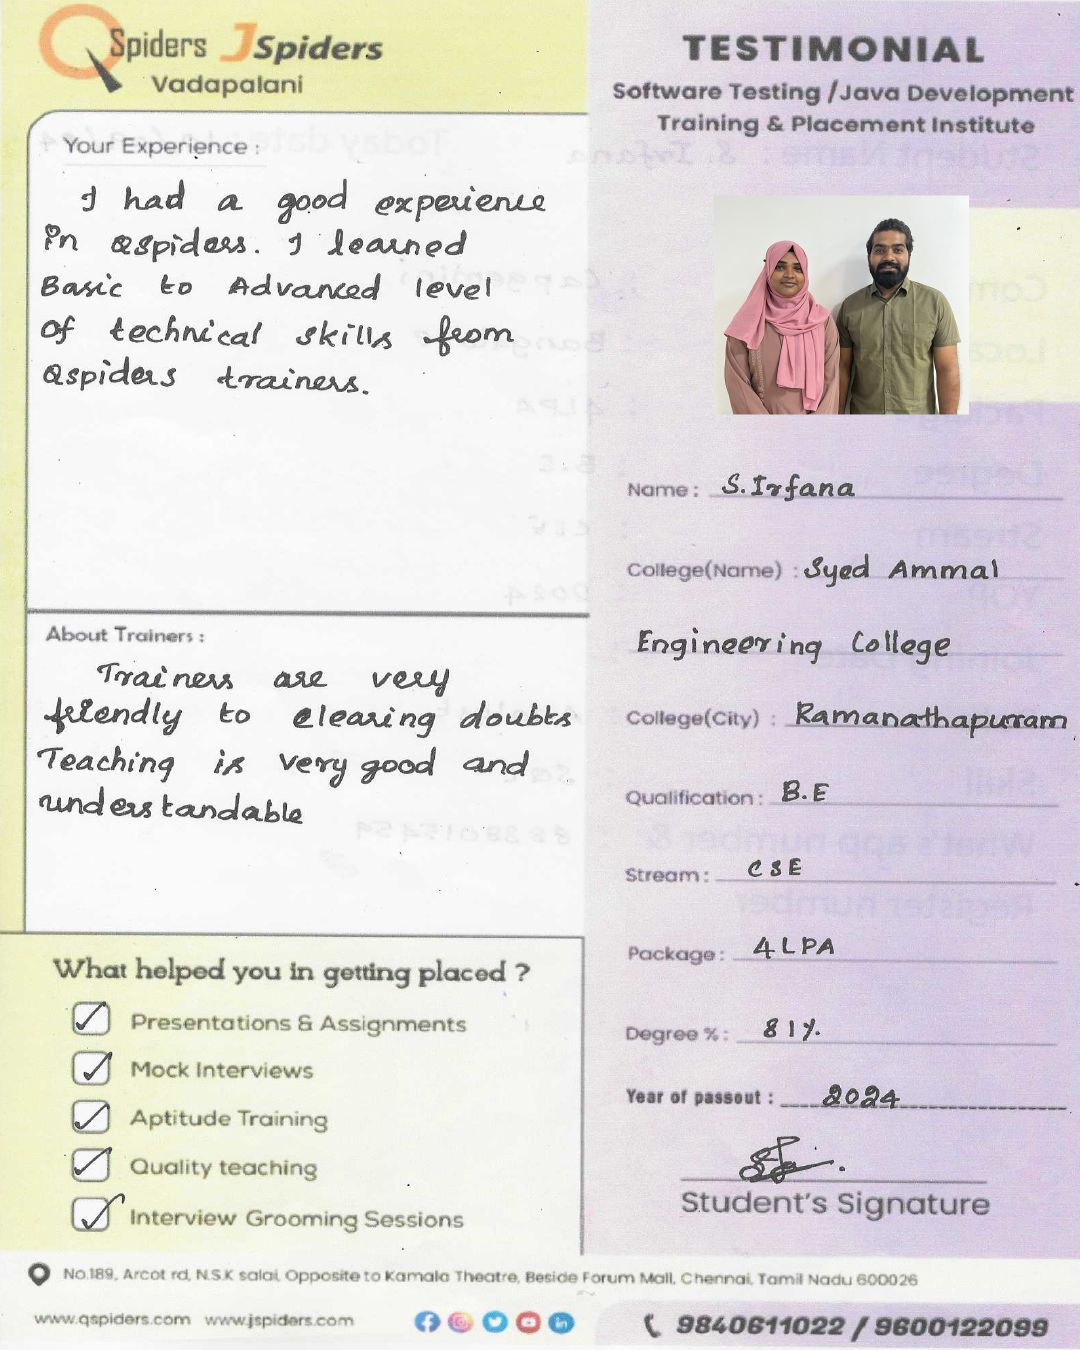 QSpiders JSpiders
Vadapalani
TESTIMONIAL
Software Testing /Java Development
Training & Placement Institute
Your Experience :
I had a good experience
in Qspiders. I learned
Basic to Advanced level
of technical skills from
Qspiders trainers.
About Trainers :
Trainers are very
friendly to clearing doubts
Teaching is very good and
understandable
What helped you in getting placed ?
Presentations & Assignments
Mock Interviews
Aptitude Training
Quality teaching
Interview Grooming Sessions
Name : S.Irfana
College(Name) : Syed Ammal
Engineering College
College(City) : Ramanathapuram
Qualification : B.E
Stream : CSE
Package : 4 LPA
Degree % : 81%
Year of passout : 2024
Student's Signature
No.189, Arcot rd, N.S.K salai, Opposite to Kamala Theatre, Beside Forum Mall, Chennai, Tamil Nadu 600026
www.qspiders.com www.jspiders.com
9840611022 / 9600122099